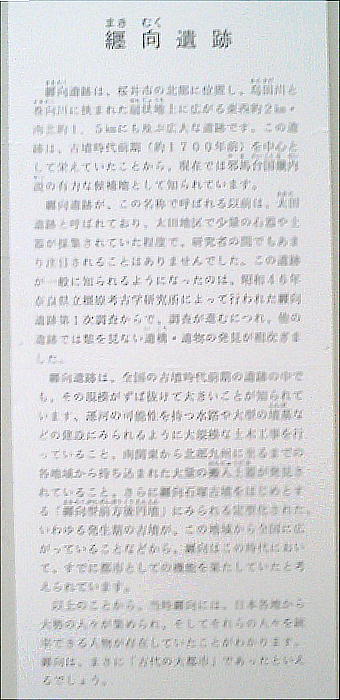 まき むく
纒向遺跡
纒向遺跡は、桜井市の北部に位置し、烏田川と
巻向川に挟まれた扇状地上に広がる東西約2km・
南北約1.5kmにも及ぶ広大な遺跡です。この遺
跡は、古墳時代前期(約1700年前)を中心と
して栄えていたことから、現在では邪馬台国畿内
説の有力な候補地として知られています。
纒向遺跡が、この名称で呼ばれる以前は、太田
遺跡と呼ばれており、太田地区で少量の石器や土
器が採集されていた程度で、研究者の間でもあま
り注目されることはありませんでした。この遺跡
が一般に知られるようになったのは、昭和46年
奈良県立橿原考古学研究所によって行われた纒向
遺跡第1次調査からで、調査が進むにつれ、他の
遺跡では類を見ない遺構・遺物の発見が相次ぎま
した。
纒向遺跡は、全国の古墳時代前期の遺跡の中で
も、その規模がずば抜けて大きいことが知られて
います。運河の可能性を持つ水路や大型の墳墓な
どの建設にみられるように大規模な土木工事を行
っていること、南関東から北部九州に至るまでの
各地域から持ち込まれた大量の搬入土器が発見さ
れていること、さらに纒向石塚古墳をはじめとす
る「纒向型前方後円墳」にみられる定型化された
いわゆる発生期の古墳が、この地域から全国に広
がっていることなどから、纒向はこの時代におい
て、すでに都市としての機能を果たしていたと考
えられています。
以上のことから、当時纒向には、日本各地から
大勢の人々が集められ、そしてそれらの人々を統
率できる人物が存在していたことがわかります。
纒向は、まさに「古代の大都市」であったといえ
るでしょう。